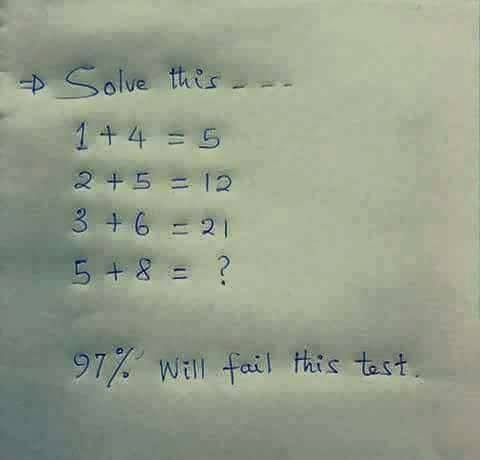 ⇒ Solve this ---
1 + 4 = 5
2 + 5 = 12
3 + 6 = 21
5 + 8 = ?
97% Will fail this test.